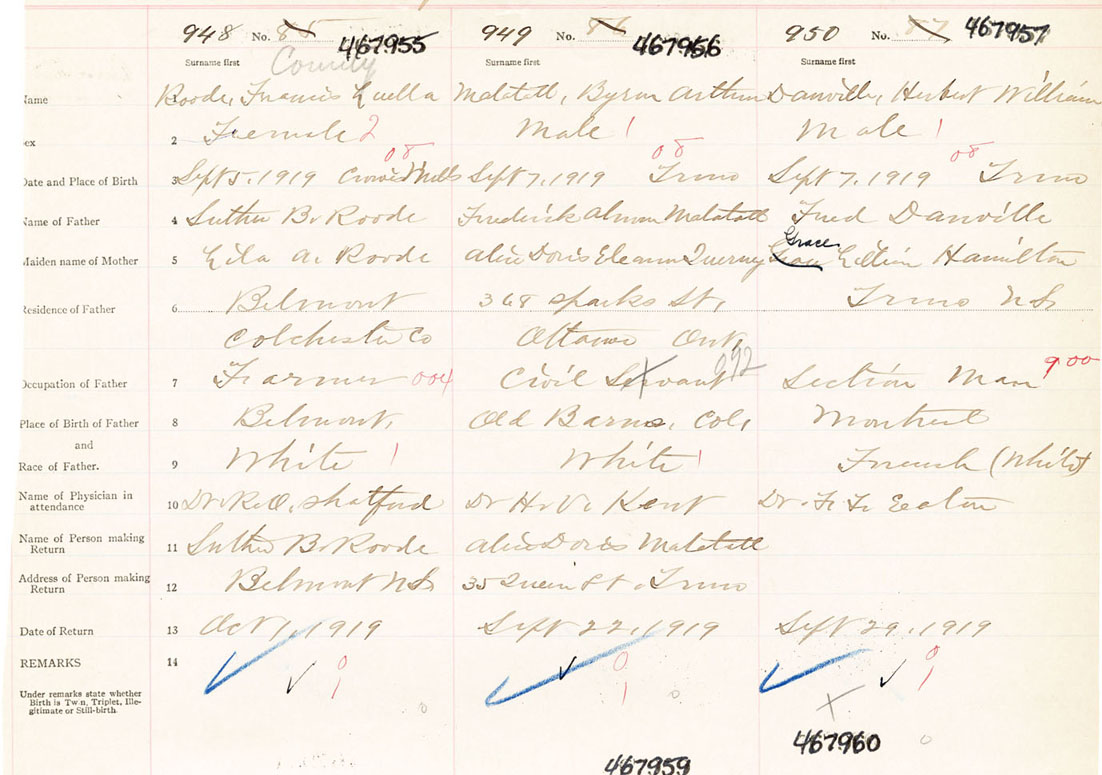 948 No. 85 467955 949 No. 86 467956 950 No. 87 467957
Surname first County Surname first Surname first
Name 1 Roode, Francis Luella Matatall, Byron Arthur Danville, Herbert William
Sex 2 Female 2 Male 1 Male 1
08 08 08
Date and Place of Birth 3 Sept 5, 1919 Crowes Mills Sept 7, 1919 Truro Sept 7, 1919 Truro
Name of Father 4 Luther B. Roode Frederick Matatall Fred Danville
Grace
Maiden name of Mother 5 Lila A. Roode Alice Doris Eleanor Lillian Hamilton
Residence of Father 6 Belmont 368 Sparks St, Truro N.S.
Colchester Co Ottawa Ont,
Occupation of Father 7 Farmer 004 Civil Servant 992 Section Man 9 00
Place of Birth of Father 8 Belmont, Old Barns, Col, Montreal
and
Race of Father. 9 White 1 White 1 French (White)
Name of Physician in
attendance 10 Dr. R.O. Shatford Dr H.V. Kent Dr. F. F. Eaton
Name of Person making
Return 11 Luther B. Roode Alice Doris Matatall
Address of Person making
Return 12 Belmont N.S. 35 Queen St. Truro
Date of Return 13 Oct 1, 1919 Sept 22, 1919 Sept 29, 1919
REMARKS 14 0 0 0
Under remarks state whether
Birth is Twin, Triplet, Ille-
gitimate or Still-birth.
1 1 1
0 0
467960 0
467959